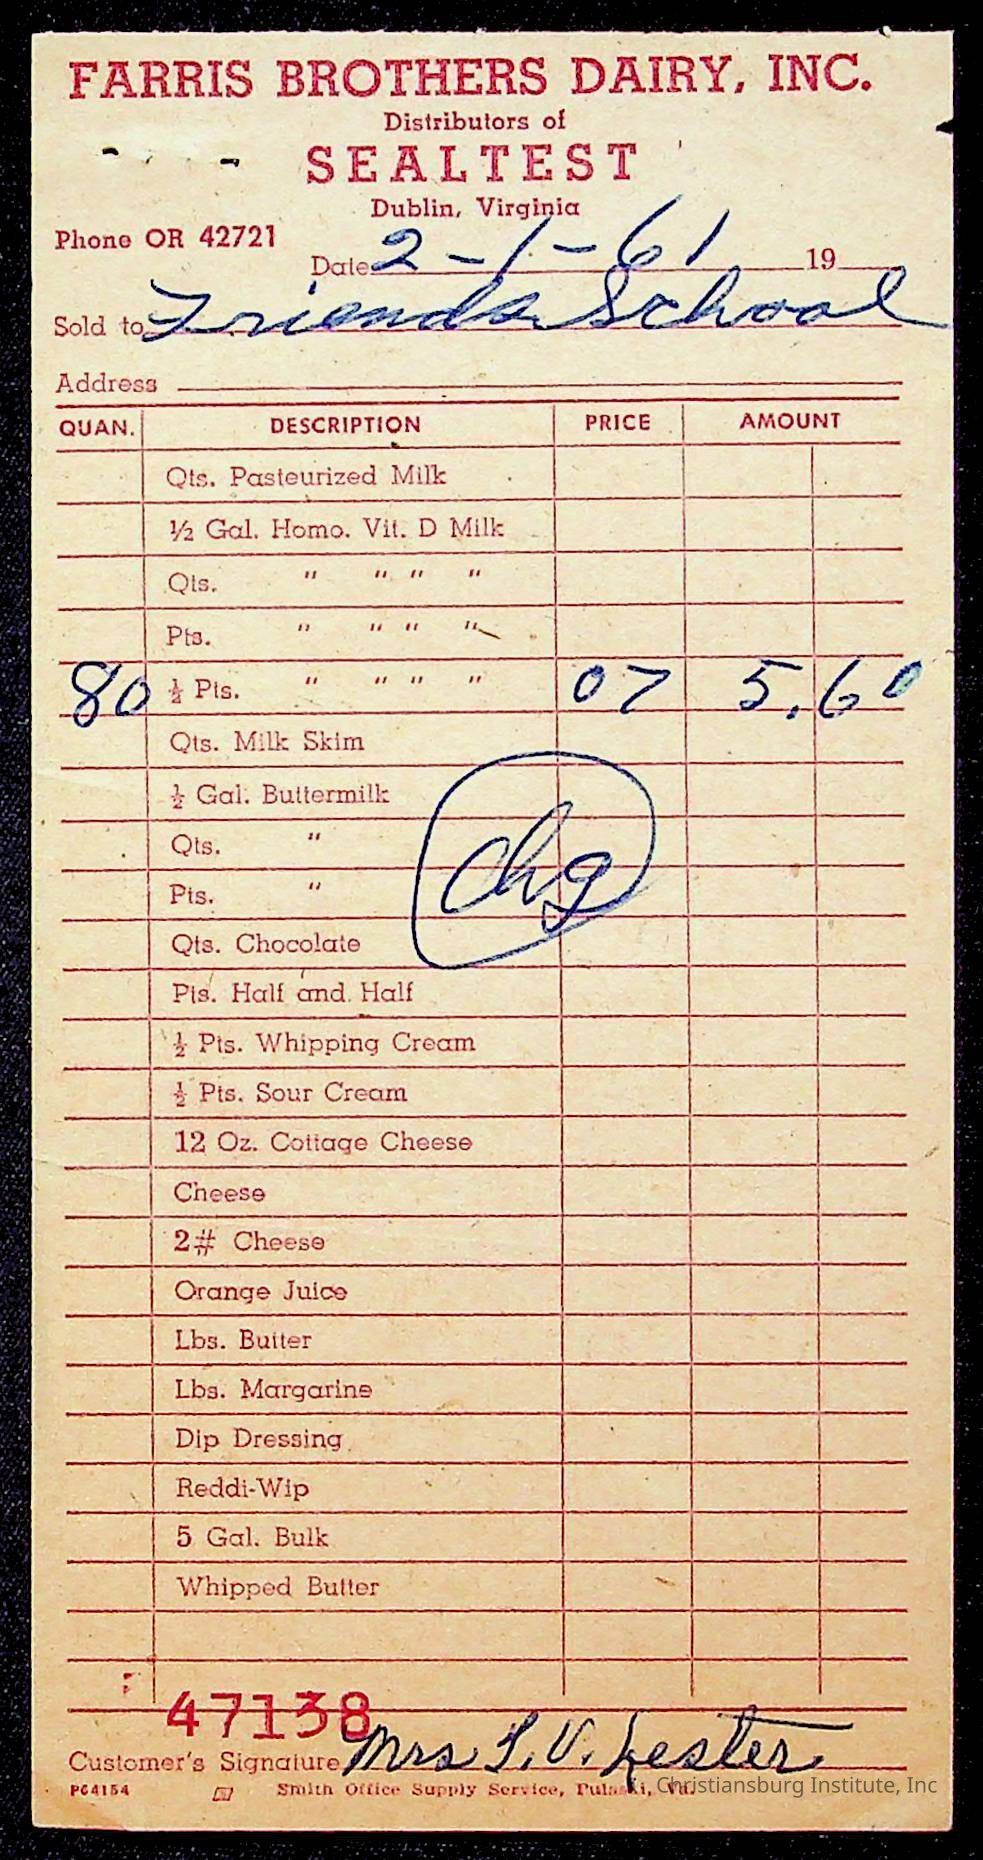 FARRIS BROTHERS DAIRY, INC.
Distributors of
SEALTEST
Dublin, Virginia
Phone OR 42721
Date 2-1-61 19
Sold to Friends School
Address
QUAN. DESCRIPTION PRICE AMOUNT
Qts. Pasteurized Milk
½ Gal. Homo. Vit. D Milk
Qts. " " " "
Pts. " " " "
80 ½ Pts. " " " " 07 5.60
Qts. Milk Skim
½ Gal. Buttermilk
Qts. "
chg
Pts. "
Qts. Chocolate
Pts. Half and Half
½ Pts. Whipping Cream
½ Pts. Sour Cream
12 Oz. Cottage Cheese
Cheese
2# Cheese
Orange Juice
Lbs. Butter
Lbs. Margarine
Dip Dressing
Reddi-Wip
5 Gal. Bulk
Whipped Butter
47138
Customer's Signature Mrs L.V. Lester
P64154 Smith Office Supply Service, Pulaski, Va.
Christiansburg Institute, Inc